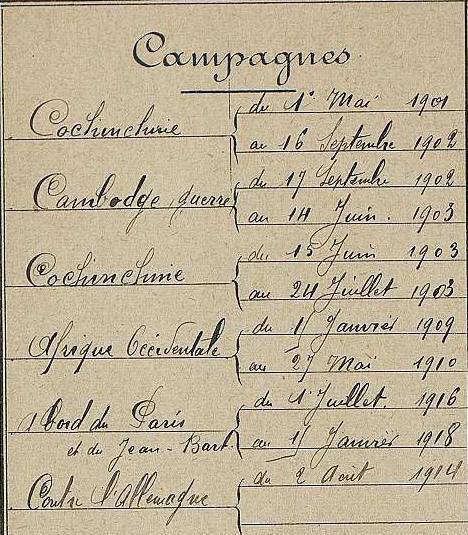 Campagnes
Cochinchine
du 1er Mai 1901
au 16 Septembre 1902
Cambodge, guerre
du 17 Septembre 1902
au 14 Juin. 1903
Cochinchine
du 15 Juin 1903
au 24 Juillet 1903
Afrique Occidentale
du 1/ Janvier 1909
au 27 Mai 1910
A bord du Paris
et du Jean-Bart.
du 1er Juillet. 1916
au 1/ Janvier 1918
Contre l'Allemagne
du 2 Août 1914